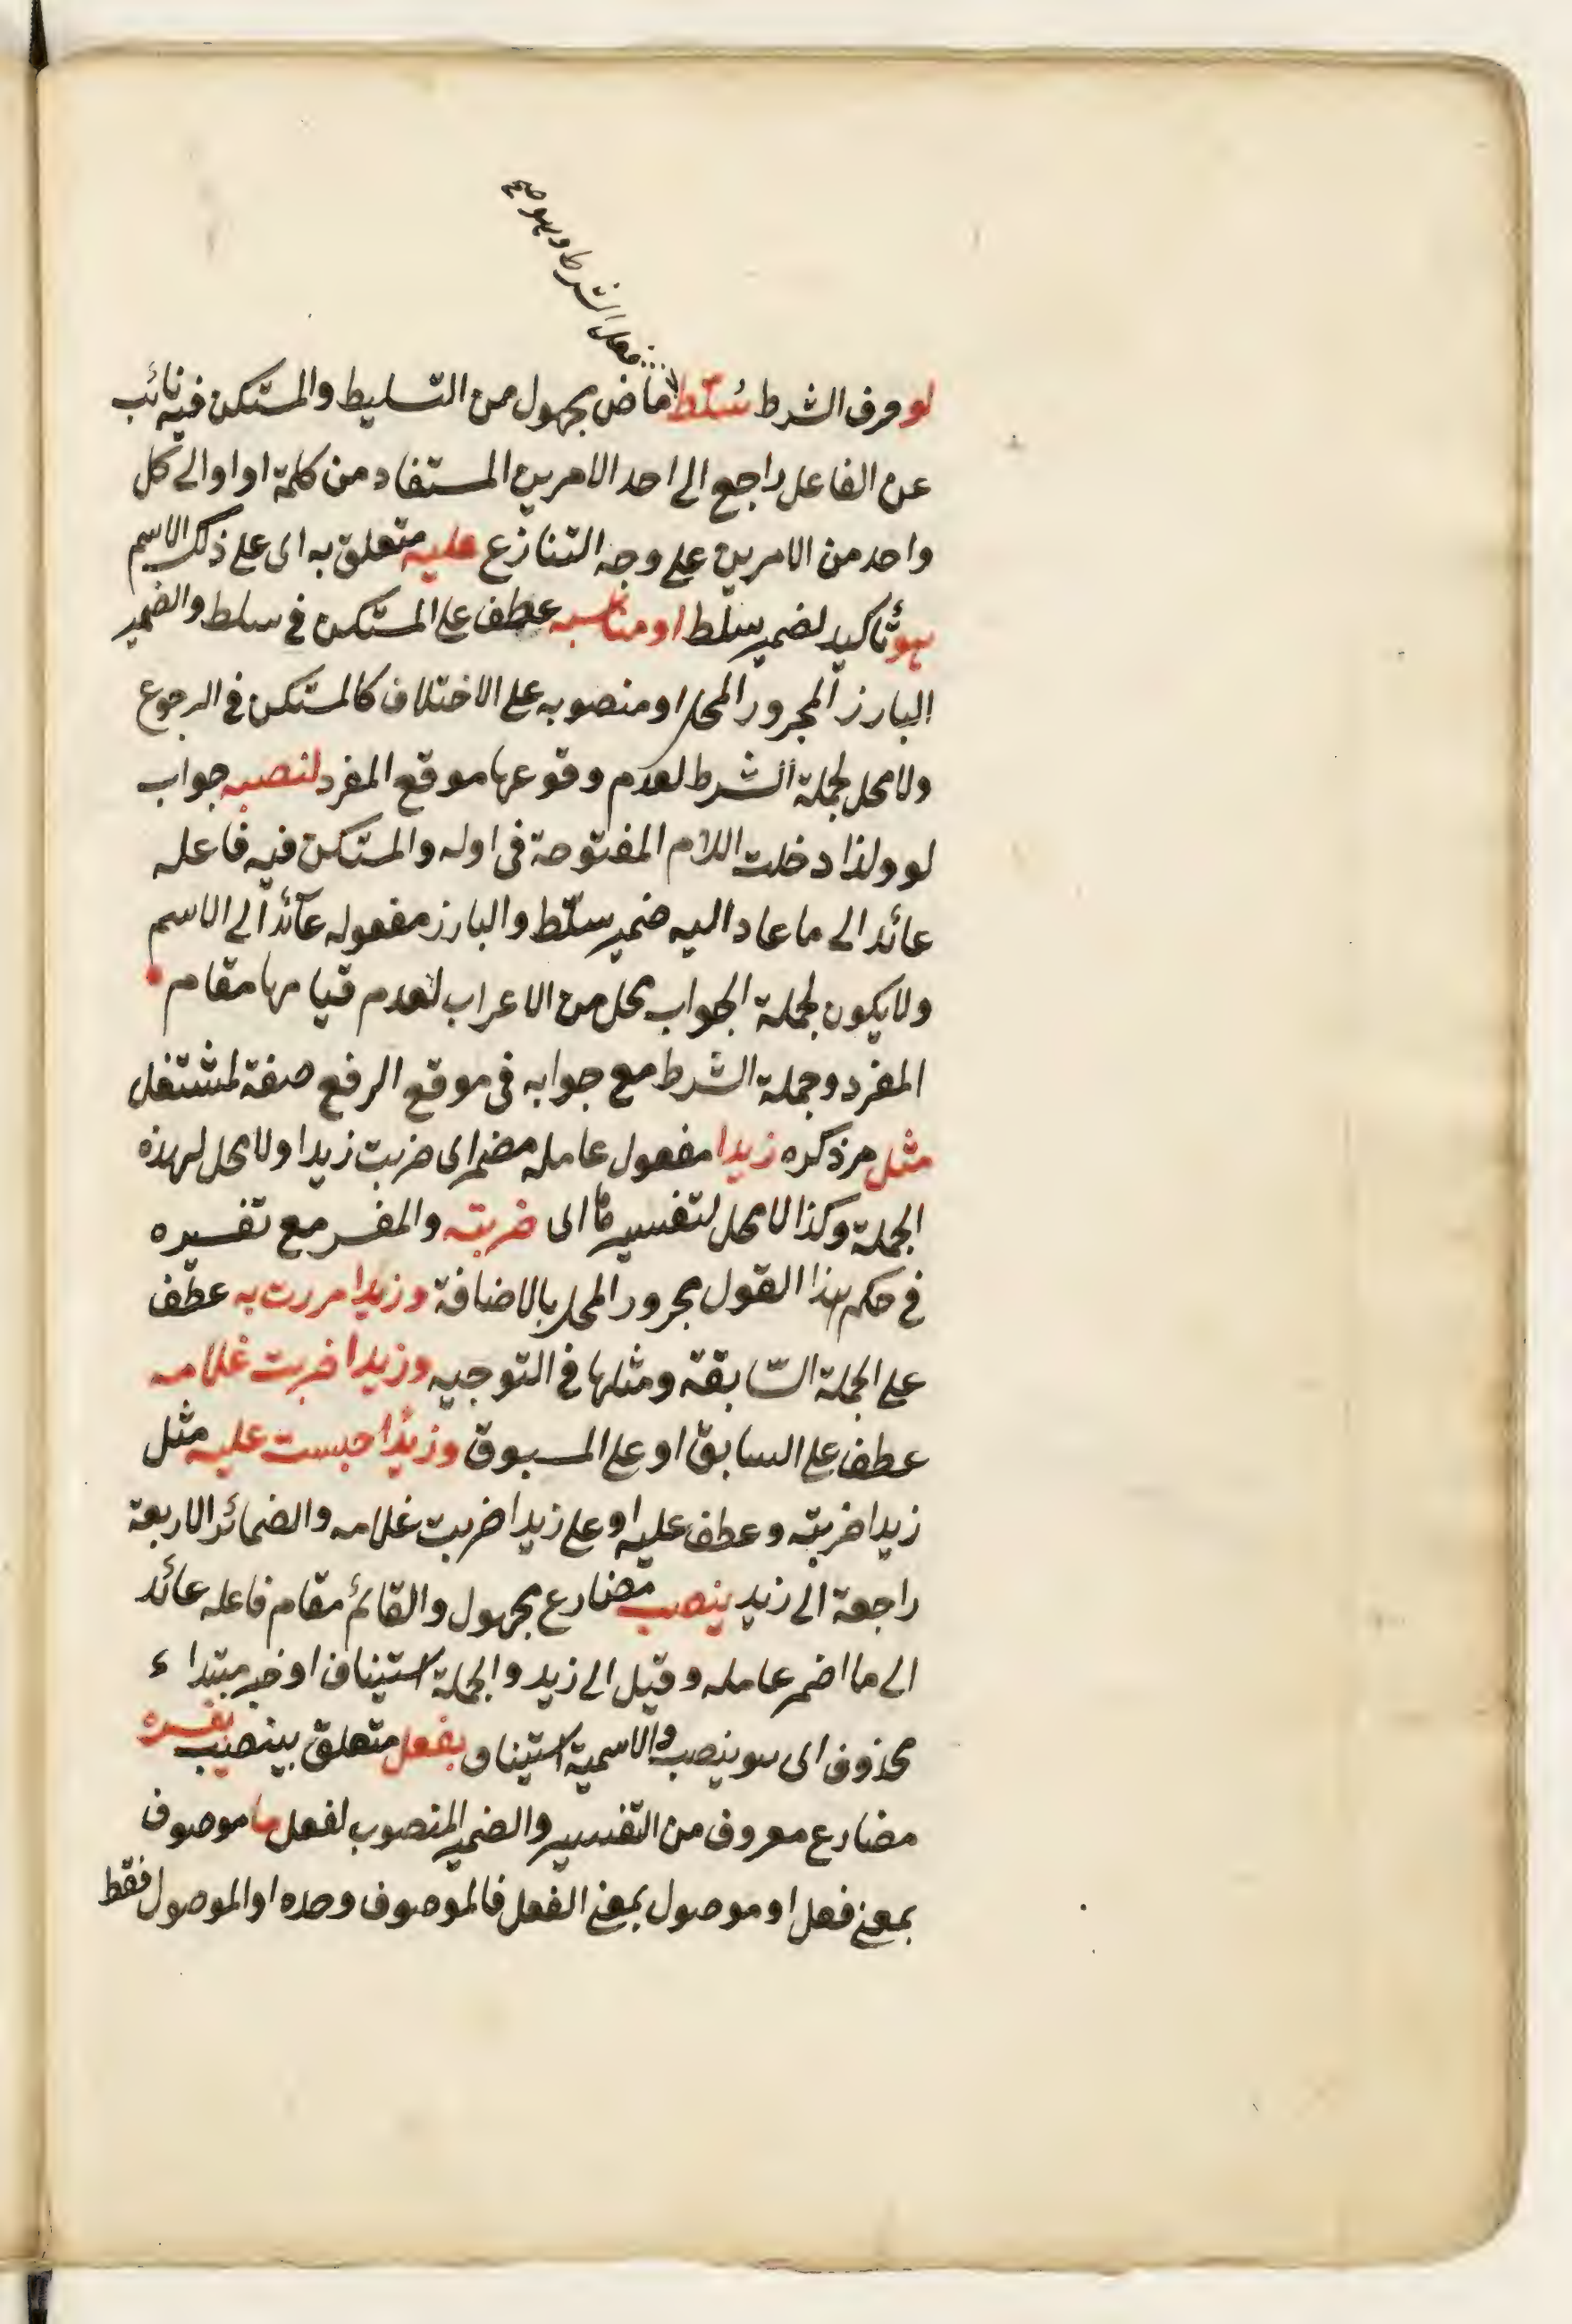 فعل الشرط وهو صح
لو حرف الشرط سُلّط ماض مجهول من التسليط والمستكن فيه نائب
عن الفاعل راجع الى احد الامرين المستفاد من كلمة او او الى كل
واحد من الامرين على وجه التنازع عليه متعلق به اى على ذلك الاسم
هو تأكيد لضمير سلط او مناسبه عطف على المستكن فى سلط والضمير
البارز المجرور المحل او منصوبه على الاختلاف كالمستكن فى الرجوع
ولا محل لجملة الشرط لعدم وقوعها موقع المفرد لنصبه جواب
لو ولذا دخلت اللام المفتوحة فى اوله والمستكن فيه فاعله
عائد الى ما عاد اليه ضمير سلّط والبارز مفعوله عائد الى الاسم
ولا يكون لجملة الجواب محل من الاعراب لعدم قيامها مقام
المفرد وجملة الشرط مع جوابه فى موقع الرفع صفة لمشتغل
مثل مر ذكره زيدا مفعول عامله مضمر اى ضربت زيدا ولا محل لهذه
الجملة وكذا لا محل لتفسيرها اى ضربته والمفسر مع تفسيره
فى حكم هذا القول مجرور المحل بالاضافة وزيدا مررت به عطف
على الجملة السّابقة ومثلها فى التوجيه وزيدا ضربت غلامه
عطف على السابق او على المسبوق وزيدًا حبست عليه مثل
زيدا ضربته وعطف عليه او على زيدا ضربت غلامه والضمائر الاربعة
راجعة الى زيد ينصب مضارع مجهول والقائم مقام فاعله عائد
الى ما اضمر عامله وقيل الى زيد والجملة استيناف او خبر مبتداء
محذوف اى هو ينصب والاسمية استيناف بفعل متعلق بينصب يفسره
مضارع معروف من التفسير والضمير المنصوب لفعل ما موصوف
بمعنى فعل او موصول بمعنى الفعل فالموصوف وحده او الموصول فقط